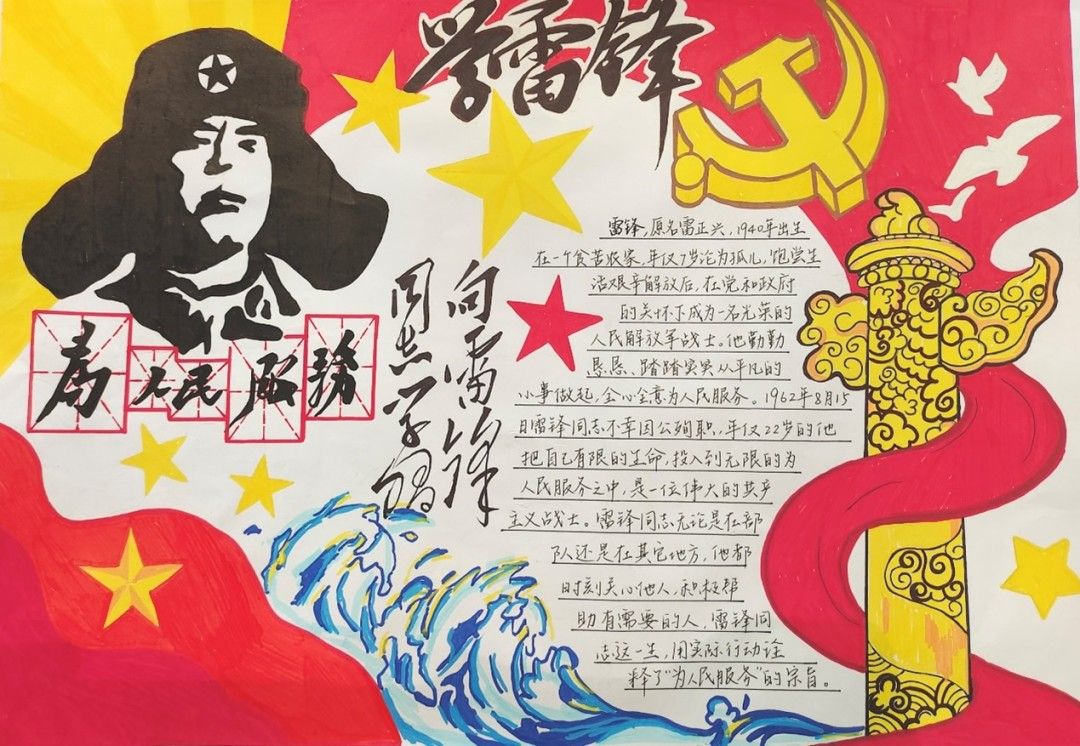 学雷锋
為人民服務
向雷锋
同志学習
雷锋,原名雷正兴,1940年出生
在一个贫苦农家,年仅7岁沦为孤儿,饱尝生
活艰辛解放后,在党和政府
的关怀下成为一名光荣的
人民解放军战士。他勤勤
恳恳、踏踏实实从平凡的
小事做起,全心全意为人民服务。1962年8月15
日雷锋同志不幸因公殉职,年仅22岁的他
把自己有限的生命,投入到无限的为
人民服务之中,是一位伟大的共产
主义战士。雷锋同志无论是在部
队还是在其它地方,他都
时刻关心他人,积极帮
助有需要的人,雷锋同
志这一生,用实际行动诠
释了“为人民服务”的宗旨。